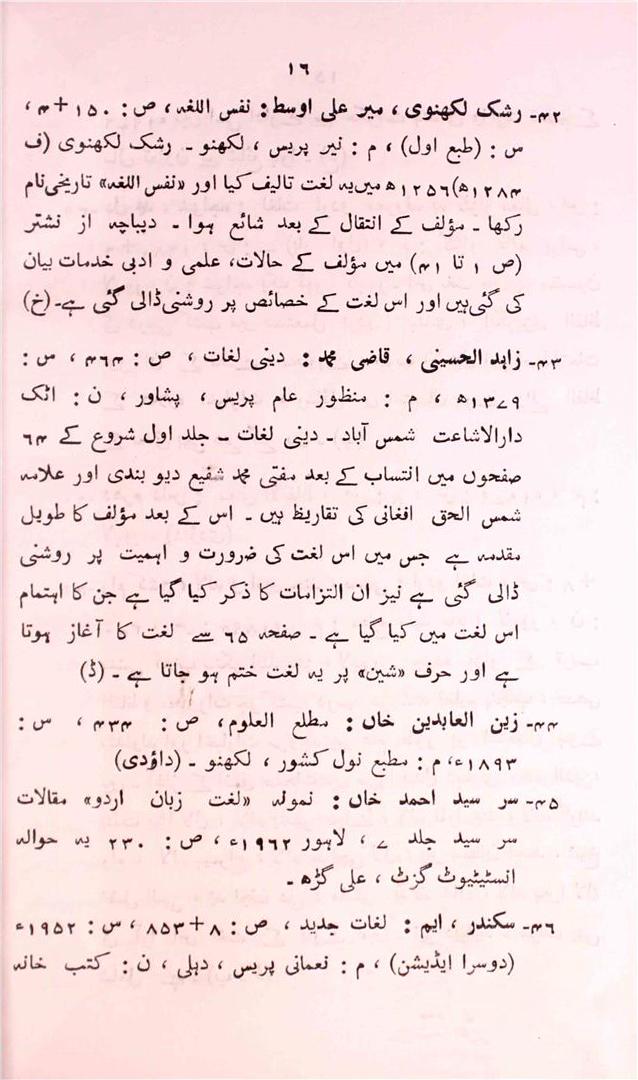 ۱٦
۴۲۔ رشک لکھنوی ، میر علی اوسط : نفس اللغہ ، ص : ۱۵۰+۴ ،
س : (طبع اول) ، م : نیر پریس ، لکھنو ۔ رشک لکھنوی (ف
۱۲۸۴ھ) ۱۲۵٦ھ میں یہ لغت تالیف کیا اور «نفس اللغہ» تاریخی نام
رکھا ۔ مؤلف کے انتقال کے بعد شائع ہوا ۔ دیباچہ از نشتر
(ص ۱ تا ۴۱) میں مؤلف کے حالات، علمی و ادبی خدمات بیان
کی گئی ہیں اور اس لغت کے خصائص پر روشنی ڈالی گئی ہے۔ (خ)
۴۳۔ زاہد الحسینی ، قاضی محمد : دینی لغات ، ص : ۴٦۴ ، س :
۱۳۷۹ھ ، م : منظور عام پریس ، پشاور ، ن : اٹک
دارالاشاعت شمس آباد ۔ دینی لغات ۔ جلد اول شروع کے ٦۴
صفحوں میں انتساب کے بعد مفتی محمد شفیع دیو بندی اور علامہ
شمس الحق افغانی کی تقاریظ ہیں ۔ اس کے بعد مؤلف کا طویل
مقدمہ ہے جس میں اس لغت کی ضرورت و اہمیت پر روشنی
ڈالی گئی ہے نیز ان التزامات کا ذکر کیا گیا ہے جن کا اہتمام
اس لغت میں کیا گیا ہے ۔ صفحہ ٦۵ سے لغت کا آغاز ہوتا
ہے اور حرف «شین» پر یہ لغت ختم ہو جاتا ہے ۔ (ڈ)
۴۴۔ زین العابدین خاں : مطلع العلوم، ص : ۴۳۴ ، س :
۱۸۹۳ء، م : مطبع نول کشور ، لکھنو ۔ (داؤدی)
۴۵۔ سر سید احمد خاں : نمونہ «لغت زبان اردو» مقالات
سر سید جلد ۷ ، لاہور ۱۹٦۲ء ، ص : ۲۳۰ بہ حوالہ
انسٹیٹیوٹ گزٹ ، علی گڑھ ۔
۴٦۔ سکندر ، ایم : لغات جدید ، ص : ۸+۸۵۳ ، س : ۱۹۵۲ء
(دوسرا ایڈیشن) ، م : نعمانی پریس ، دہلی ، ن : کتب خانہ